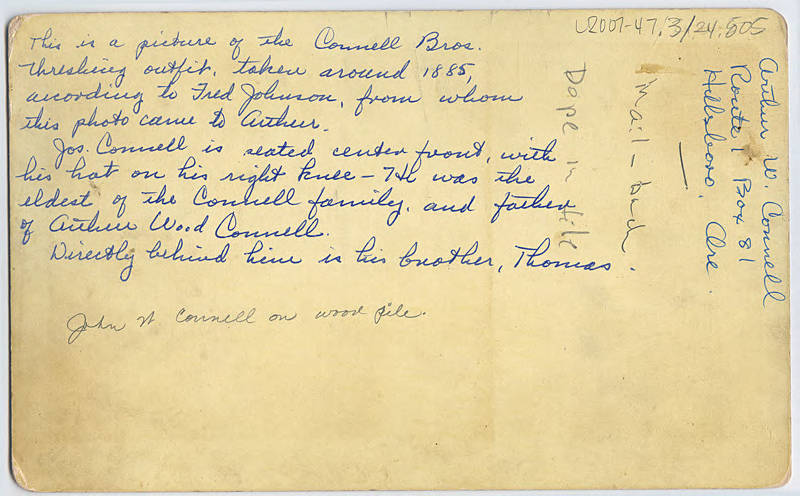 This is a picture of the Connell Bros.
threshing outfit, taken around 1885,
according to Fred Johnson, from whom
this photo came to Arthur.
Jos. Connell is seated center front, with
his hat on his right knee - He was the
eldest of the Connell family, and father
of Arthur Wood Connell.
Directly behind him is his brother, Thomas.
John W Connell on wood pile.
Dope in file
Mail -
Arthur W. Connell
Route 1 Box 81
Hillsboro, Ore.
LR2007-47.3/24:505